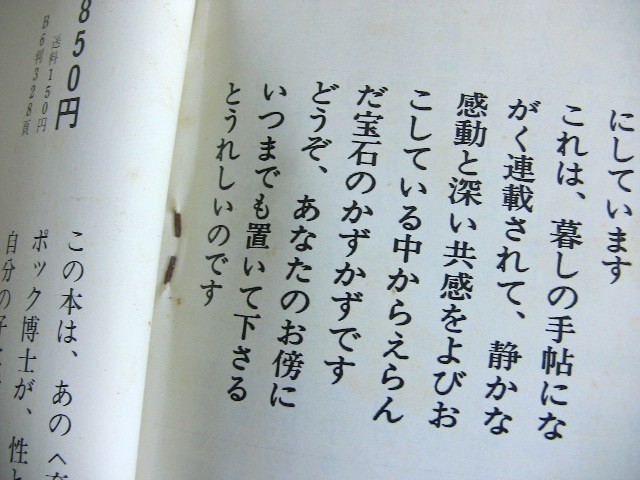 にしています
これは、暮しの手帖にな
がく連載されて、静かな
感動と深い共感をよびお
こしている中からえらん
だ宝石のかずかずです
どうぞ、あなたのお傍に
いつまでも置いて下さる
とうれしいのです
850円
送料150円
B6判328頁
この本は、あの〈育
ポック博士が、性と
自分の子